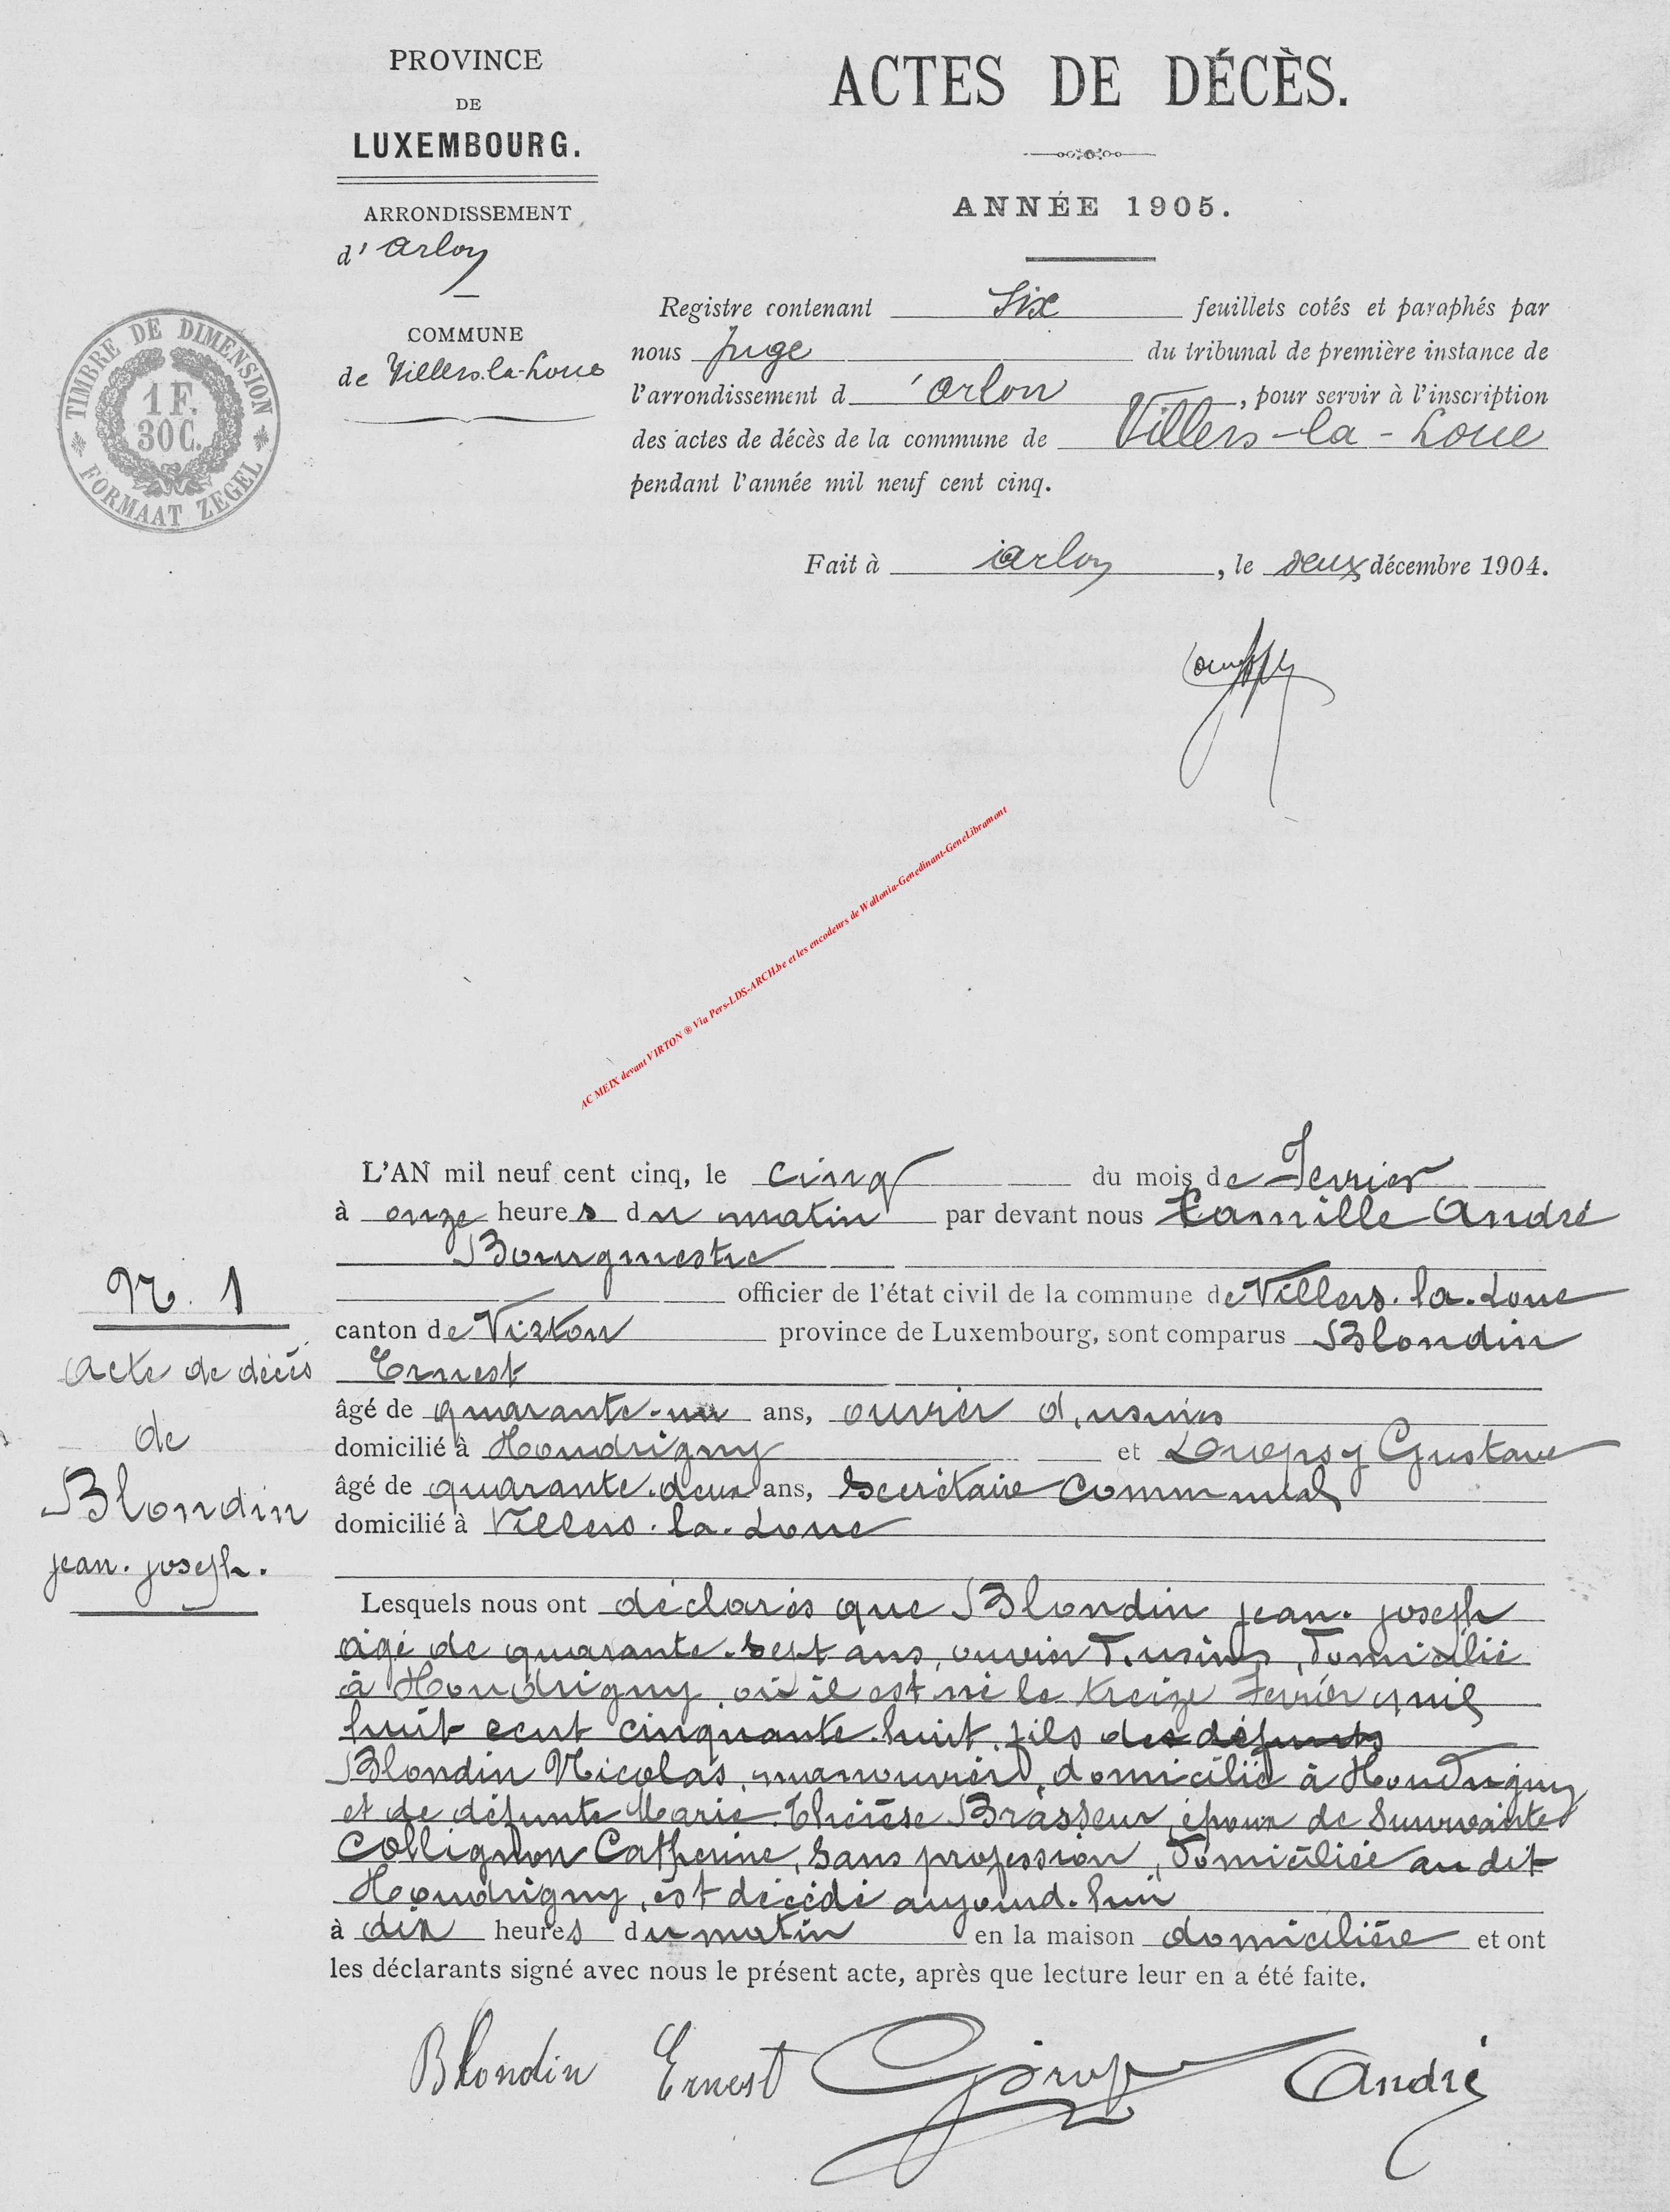 PROVINCE
DE
LUXEMBOURG.
ARRONDISSEMENT
d' Arlon
COMMUNE
de Villers-la-Loue
TIMBRE DE DIMENSION
1 F.
30 C.
FORMAAT ZEGEL
ACTES DE DÉCÈS.
ANNÉE 1905.
Registre contenant Six feuillets cotés et paraphés par
nous Juge du tribunal de première instance de
l'arrondissement d'Arlon, pour servir à l'inscription
des actes de décès de la commune de Villers-la-Loue
pendant l'année mil neuf cent cinq.
Fait à Arlon, le deux décembre 1904.
AC MEIX devant VIRTON ® Via Pers-LDS-ARCH.be et les encodeurs de Wallonia-Genedinant-GeneLibramont
N. 1
Acte de décès
de
Blondin
jean. joseph.
L'AN mil neuf cent cinq, le cinq du mois de Fevrier
à onze heures du matin par devant nous Camille André
Bourgmestre
officier de l'état civil de la commune de Villers.la.Loue
canton de Virton province de Luxembourg, sont comparus Blondin
Ernest
âgé de quarante-un ans, ouvrier d'usines
domicilié à Houdrigny et Gustave
âgé de quarante.deux ans, Secrétaire Communal
domicilié à Villers.la.Loue
Lesquels nous ont déclarés que Blondin jean. joseph
âgé de quarante.sept ans, ouvrier d'usines, domicilié
à Houdrigny, où il est né le treize Fevrier mil
huit cent cinquante.huit, fils des défunts
Blondin Nicolas, manouvrier, domicilié à Houdrigny
et de défunte Marie.Thérèse Brasseur, époux de Survivante
Collignon Catherine, Sans profession, domiciliée au dit
Houdrigny, est décédé aujourd.hui
à dix heures du matin en la maison domicilière et ont
les déclarants signé avec nous le présent acte, après que lecture leur en a été faite.
Blondin Ernest André